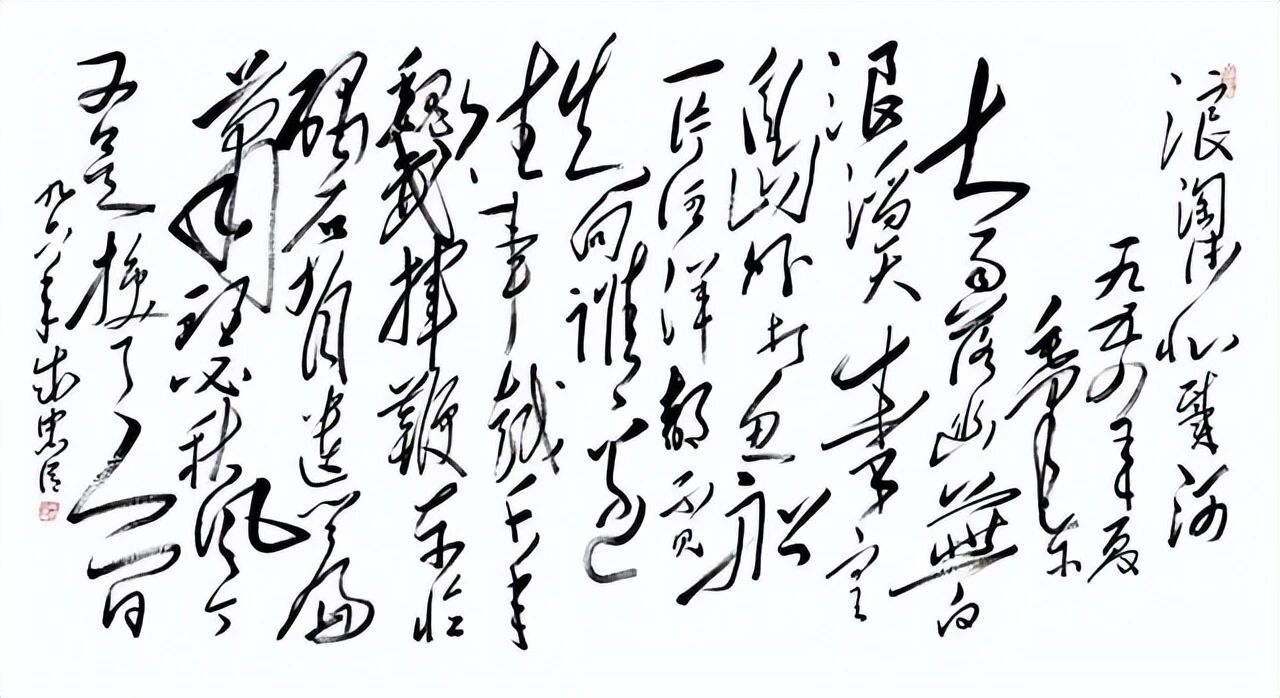 浪淘沙北戴河
九五四年夏
毛泽东
大雨落幽燕白
浪滔天秦皇
岛外打鱼船
一片汪洋都不见
知向谁边
往事越千年
魏武挥鞭东临
碣石有遗篇
萧瑟秋风今
又是换了人间
九六年